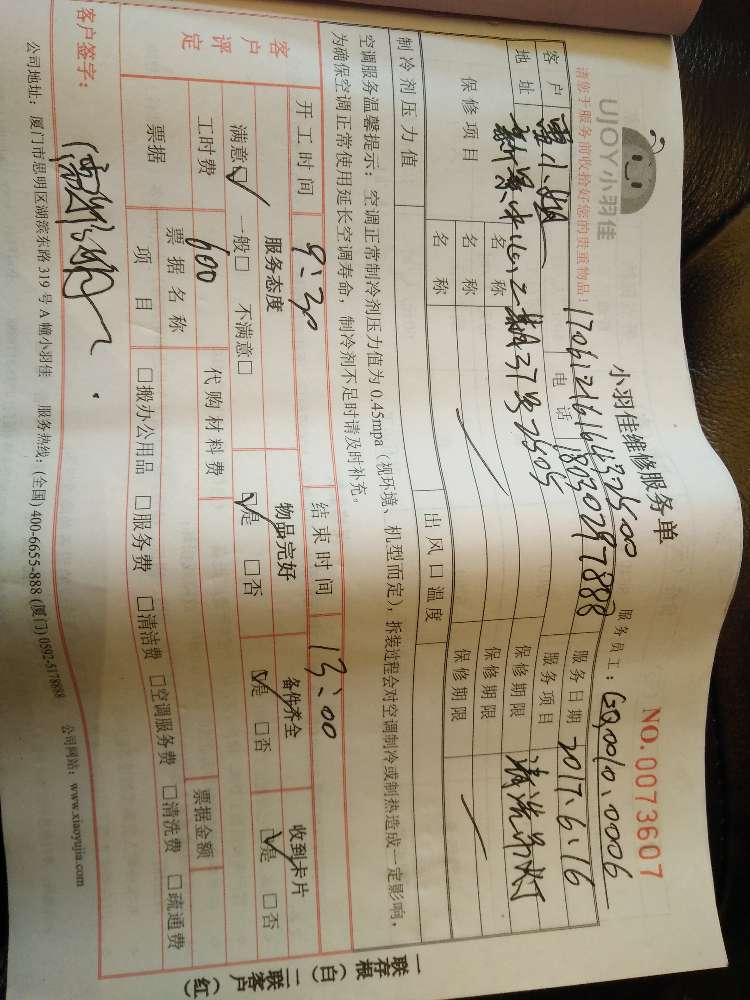 UJOY小羽佳
小羽佳维修服务单
NO.0073607
请您于服务前收拾好您的贵重物品!
服务员工:
客户 小姐 电话 18030297888 服务日期 2017.6.16
地址 新景中心 37号2505 服务项目 清洗吊灯
保修项目 名称 保修期限
名称 保修期限
名称 保修期限
制冷剂压力值 出风口温度
空调服务温馨提示:空调正常制冷剂压力值为0.45mpa(视环境、机型而定),拆装过程会对空调制冷或制热造成一定影响,
为确保空调正常使用延长空调寿命,制冷剂不足时请及时补充。
开工时间 9:30 结束时间 13:00
客户评定 服务态度 物品完好 备件齐全 收到卡片
满意□ 一般□ 不满意□ □是 □否 □是 □否 □是 □否
工时费 600 代购材料费
票据 票据名称 票据金额
项目 □搬办公用品 □服务费 □清洁费 □空调服务费 □清洗费 □疏通费
客户签字:
公司地址:厦门市思明区湖滨东路319号A幢小羽佳 服务热线:(全国)400-6655-888(厦门)0592-5178888 公司网站:www.xiaoyujia.com
一联存根(白)二联客户(红)